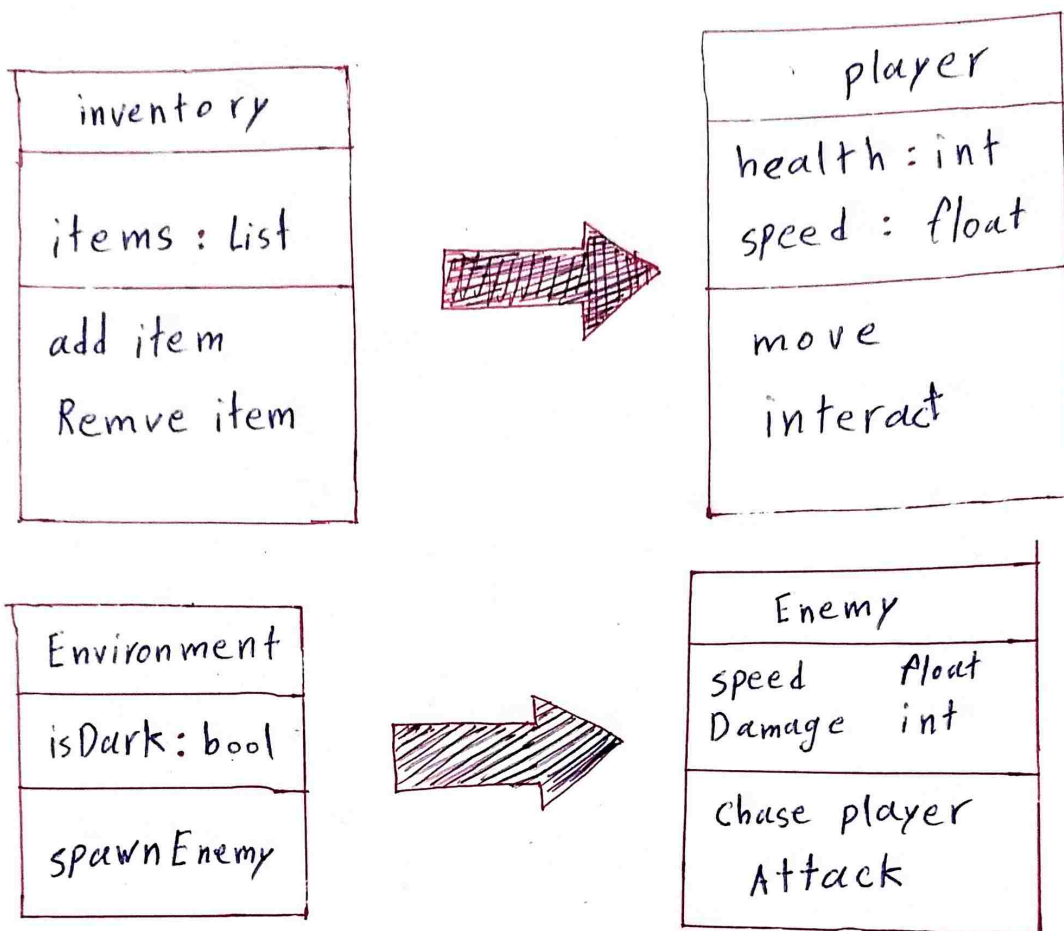 inventory
items : List
add item
Remve item
player
health : int
speed : float
move
interact
Environment
isDark : bool
spawnEnemy
Enemy
speed float
Damage int
chase player
Attack